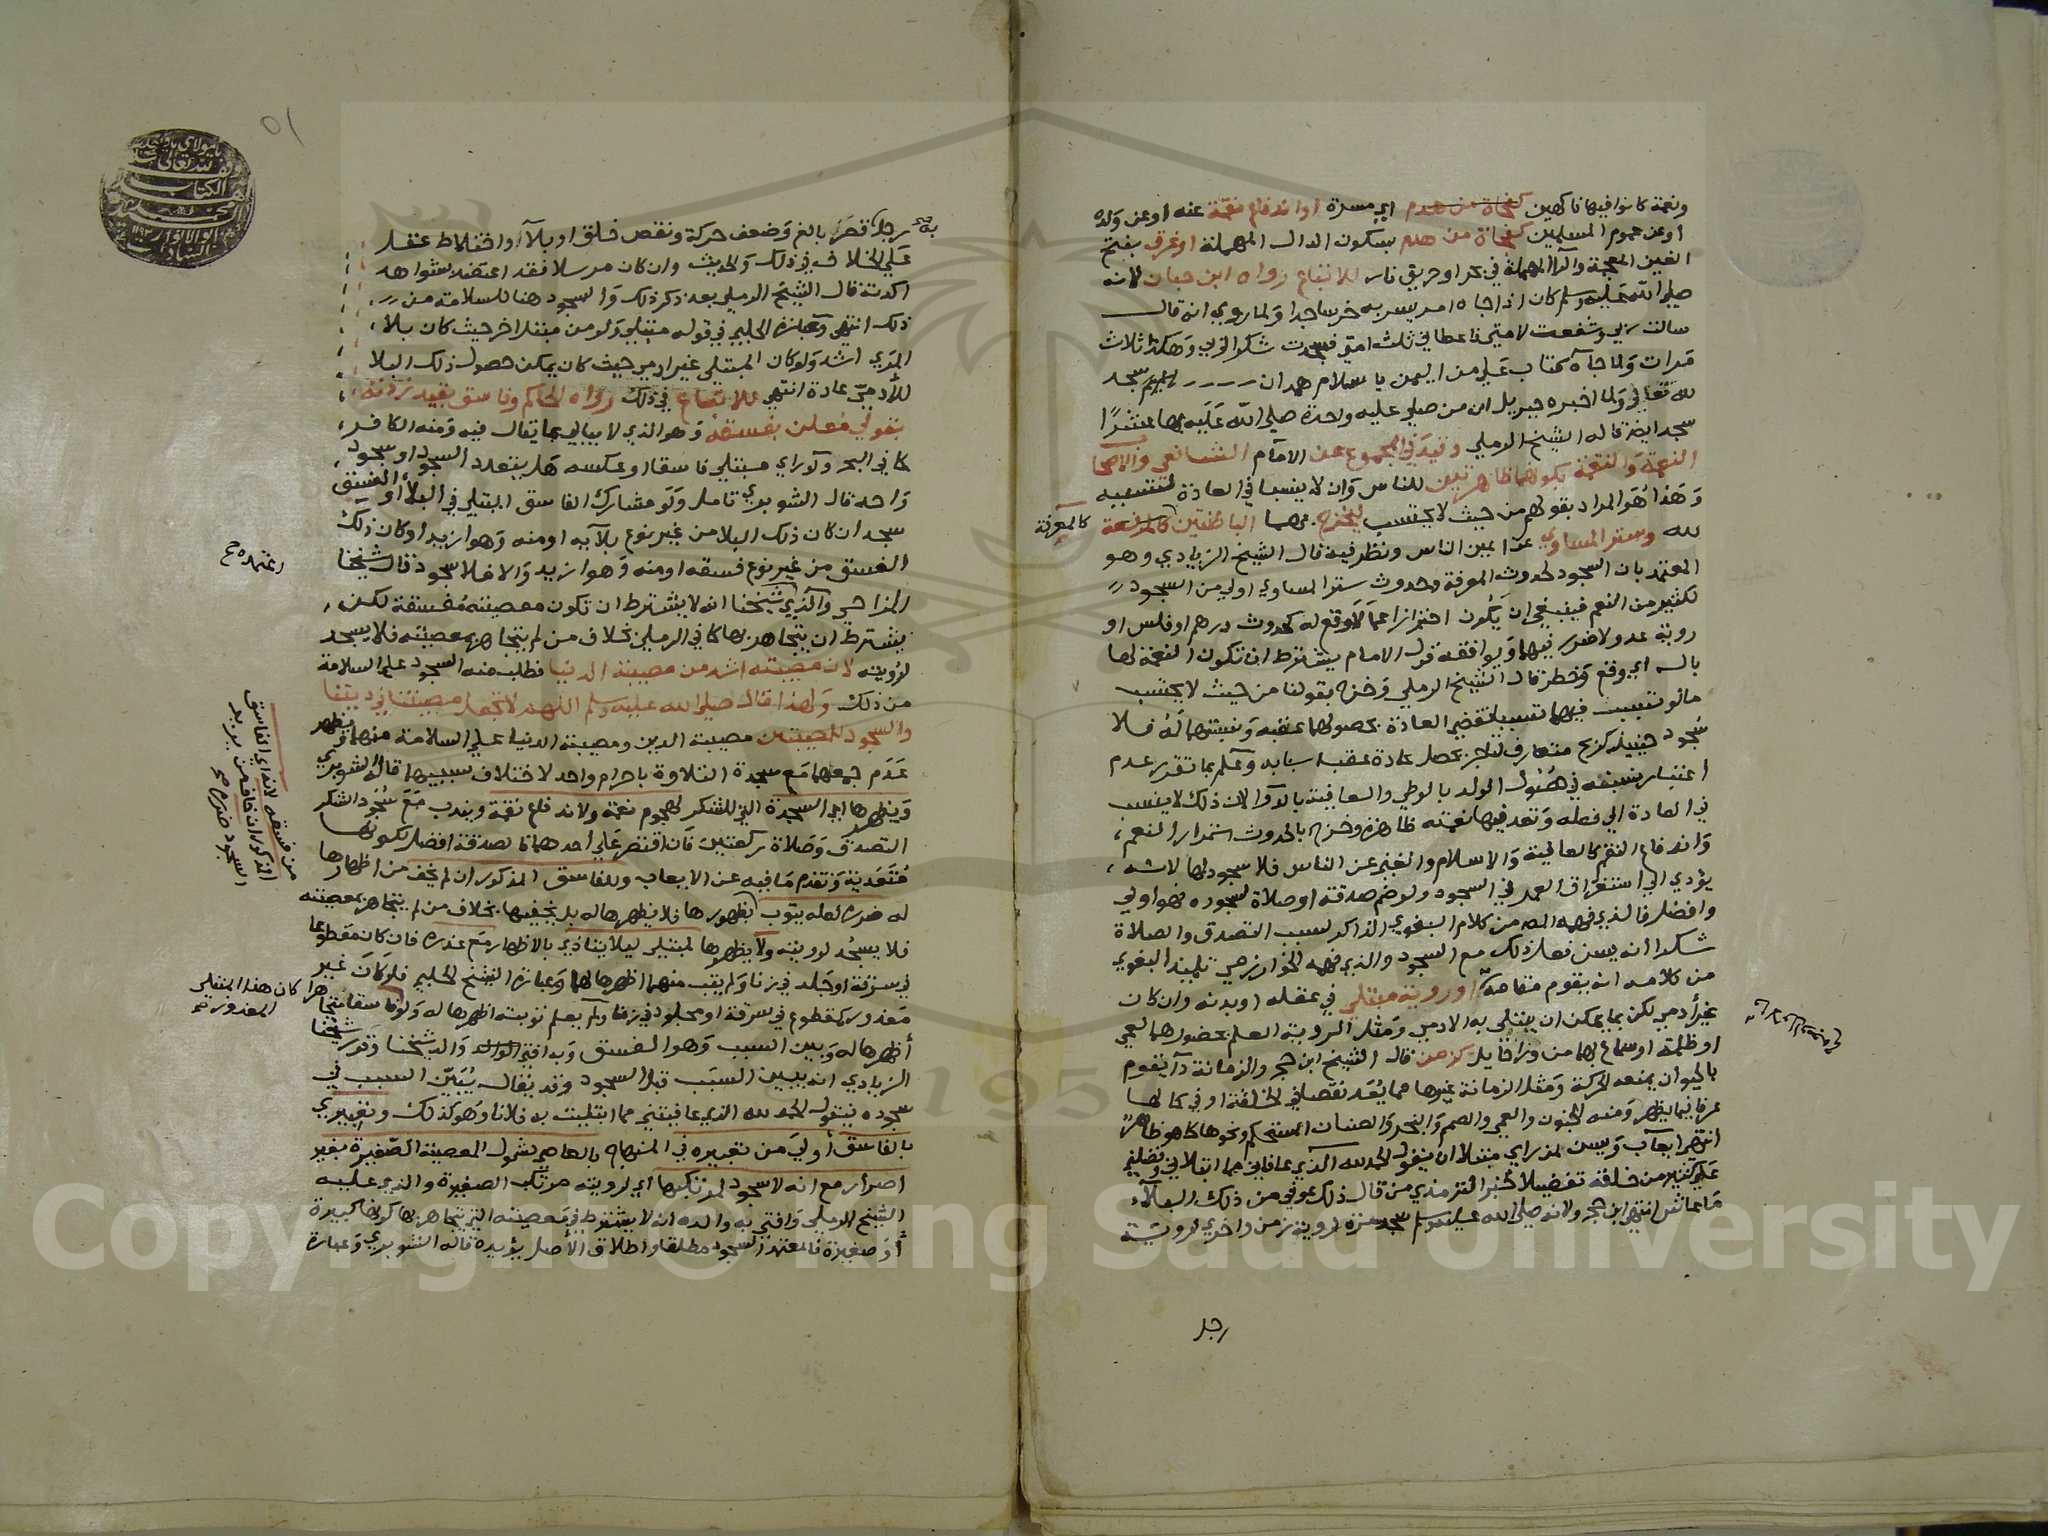 ونعمة كانوا فيها فاكهين كنجاة من هدم اي مسرة او اندفاع نقمة عنه او عن ولده
او عن عموم المسلمين كنجاة من هدم بسكون الدال المهملة او غرق بفتح
الغين المعجمة والرآ المهملة في بحر او حريق نار للاتباع رواه ابن حبان لانه
صلي الله عليه وسلم كان اذا جاه امر يسر به خر ساجدا ولما روي انه قال
سالت ربي وشفعت لامتي فاعطاني ثلث امتي فسجدت شكرا لربي وهكذا ثلاث
مرات ولما جآه كتاب علي من اليمن باسلام همدان سجد
لله تعالي ولما اخبره جبريل ان من صلي عليه واحدة صلي الله عليه بها عشرًا
سجد ايضا قاله الشيخ الرملي وقيد في المجموع عن الامام الشافعي والاصحاب
النعمة والنقمة بكونهما ظاهرتين للناس وان لا ينسبا في العادة لتسببه
وهذا هو المراد بقولهم من حيث لا يحتسب ليخرج بهما الباطنتين كالمعرفة
لله وستر المساوي عن اعين الناس ونظر فيه قال الشيخ الزيادي وهو
المعتمد بان السجود لحدوث المعرفة وحدوث ستر المساوي اولي من السجود
لكثير من النعم فينبغي ان يكون احترازا عما لا وقع له كحدوث درهم او فلس او
روية عدو لا ضرر فيها ويوافقه قول الامام يشترط ان تكون النعمة لها
بال اي وقع وخطر قال الشيخ الرملي وخرج بقولنا من حيث لا يحتسب
مالو تسبب فيهما تسببا تقضي العادة بحصولهما عقبه ونسبتهما له فلا
سجود حينيذ كربح متعارف لتاجر يحصل عادة عقب اسبابه وعلم بما تقرر عدم
اعتبار تسببه في حصول الولد بالوطي والعافية بالدوآ لان ذلك لا ينسب
في العادة الي فعله وتعد فيهما نعمته ظاهرة وخرج بالحدوث استمرار النعم
واندفاع النقم كالعافية والاسلام والغني عن الناس فلا سجود لها لانه
يؤدي الي استغراق العمر في السجود ولو ضم صدقة او صلاة لسجوده فهو اولي
وافضل فالذي فهمه المص من كلام البغوي الذاكر لسبب التصدق والصلاة
شكرا انه يسن فعل ذلك مع السجود والذي فهمه الخوارزمي تلميذ البغوي
من كلامه انه يقوم مقامه او روية مبتلي في عقله او بدنه وان كان
غير أدمي لكن بما يمكن ان يبتلي به الادمي ومثل الروية العلم بحضورها لعمي
او ظلمة او سماع لها من ورآ حايل كزمن قال الشيخ ابن حجر والزمانة دآ يقوم
بالحيوان يمنعه الحركة ومثل الزمانة غيرها مما يعد نقصا في الخلقة او في كمالها
عرفا فيما يظهر ومنه الجنون والعمي والصمم والبخر والصنان المستحكم ونحوها كما هو ظاهر
انتهي ايعاب ويسن لمن راي مبتلا ان يقول الحمد لله الذي عافاني مما ابتلاني وفضلني
علي كثير من خلقه تفضيلا لخبر الترمذي من قال ذلك عوفي من ذلك البلآء
ما عاش انتهي ابن حجر ولانه صلي الله عليه وسلم سجد مرة لروية زمن واخري لروية
رجل
كالمعرفة
رجل قصير بالغ وضعف حركة ونقص خلق او بلآ او اختلاط عقل
علي الخلاف في ذلك والحديث وان كان مرسلا فقد اعتضد بشواهد
اكدته قال الشيخ الرملي بعد ذكر ذلك والسجود هنا للسلامة من
ذلك انتهي وعبارة الحلبي في قوله مبتلي ولو من مبتلا اخر حيث كان بلا
المري اشد ولو كان المبتلي غير ادمي حيث كان يمكن حصول ذلك البلا
للآدمي عادة انتهي للاتباع في ذلك رواه الحاكم وفاسق بقيد زدته
بقولي معلن بفسقه وهو الذي لا يبالي بما يقال فيه ومنه الكافر
كما في البحر ولو راي مبتلي فاسقا او عكسه هل يتعدد السجود او سجود
واحد قال الشوبري تامل ولو مشارك الفاسق المبتلي في البلا او الفسق
سجد ان كان ذلك البلا من غير نوع بلآيه او منه وهو ازيد او كان ذلك
الفسق من غير نوع فسقه او منه وهو ازيد والا فلا سجود قال شيخنا
المزاحي والذي شيخنا انه لا يشترط ان تكون معصيته مفسقة لكن
يشترط ان يتجاهر بها كما في الرملي بخلاف من لم يتجاهر بمعصيته فلا يسجد
لرويته لان مصيبته اشد من مصيبة الدنيا فطلب منه السجود علي السلامة
من ذلك ولهذا قال صلي الله عليه وسلم اللهم لا تجعل مصيبتنا في ديننا
والسجود للمصيبتين مصيبة الدين ومصيبة الدنيا علي السلامة منهما ويظهر
عدم جمعهما مع سجدة التلاوة باحرام واحد لاختلاف سببيهما قاله الشوبري
ويظهرها اي السجدة التي للشكر لهجوم نعمة ولاندفاع نقمة ويندب مع سجود الشكر
التصدق وصلاة ركعتين فان اقتصر علي أحدهما فالصدقة افضل لكونها
متعدية وتقدم مافيه عن الايعاب وللفاسق المذكور ان لم يخف من اظهارها
له ضرره لعله يتوب بظهورها فلا يظهرها له بل يخفيها بخلاف من لم يتجاهر بمعصيته
فلا يسجد لرويته ولا يظهرها لمبتلي ليلا يتاذي بالاظهار مع عذره فان كان مقطوعا
في سرقة او جلد في زنا ولم يتب منهما اظهرها لهما وعبارة الشيخ الحلبي فلو كان غير
معذور كمقطوع في سرقة او مجلود في زنا ولم يعلم توبته اظهرها له ولو فاسقا متجاهرا
أظهرها له وبين السبب وهو الفسق وبه افتي الوالد والد شيخنا وقرر شيخنا
الزيادي انه يبين السبب قبل السجود وقد يقال يبين السبب في
سجوده فيقول الحمد لله الذي عافيتني مما ابتليت به فلانا وهو كذلك وتعبيري
بالفاسق أولي من تعبيره في المنهاج بالعاصي لشمول المعصية الصغيرة بغير
اصرار مع انه لا سجود لمرتكبها اي لروية مرتكب الصغيرة والذي عليه
الشيخ الرملي وافتي به والده انه لا يشترط في معصيته التي يتجاهر بها كونها كبيرة
أو صغيرة فالمعتمد السجود مطلقا واطلاق الأصل يؤيده قاله الشوبري وعبارة
اعتمده ح
من فسقه لانداي الفاسق
المذكور ان خاف من يريد
السجود ضرره صح
كان هذا المبتلي
المعذور صح
Copyright © King Saud University
195